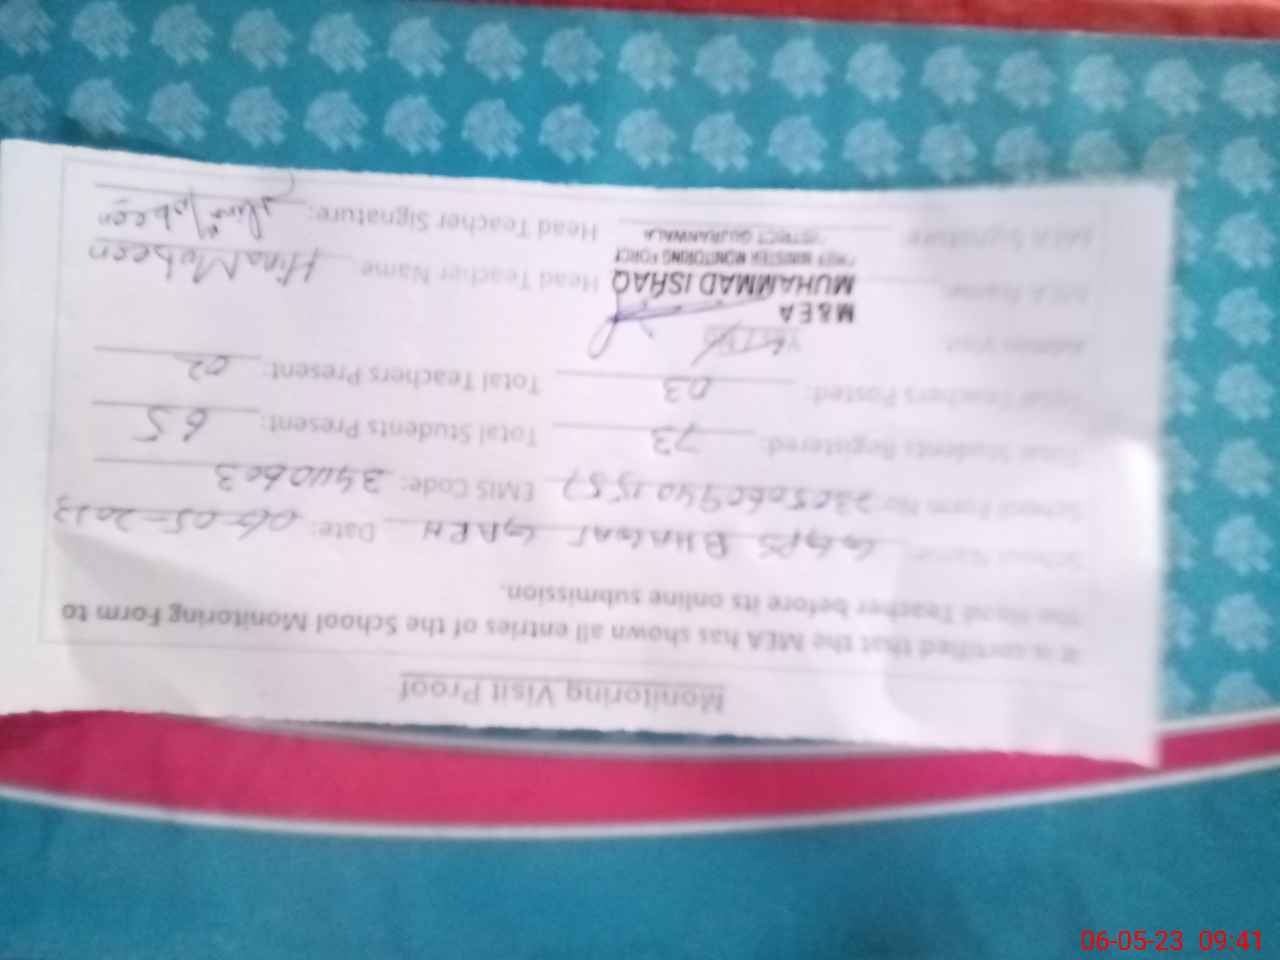 Monitoring Visit Proof
It is certified that the MEA has shown all entries of the School Monitoring Form to
the Head Teacher before its online submission.
School Name: GGPS BHAGAT GARH Date: 06-05-2023
School Form No: EMIS Code:
Total Students Registered: 73 Total Students Present: 65
Total Teachers Posted: 03 Total Teachers Present: 02
Admin Visit: Yes/No
M&EA
MEA Name: MUHAMMAD ISHAQ Head Teacher Name Hina Mubeen
CHIEF MINISTER MONITORING FORCE
MEA Signature: DISTRICT GUJRANWALA Head Teacher Signature:
06-05-23 09:41